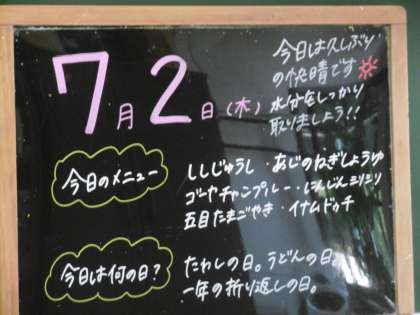 7月2日(木)
今日は久しぶり
の快晴です
水分をしっかり
取りましょう!!
今日のメニュー
ししじゅうし・あじのねぎしょうゆ
ゴーヤチャンプルー・にんじんシリシリ
五目たまごやき・イナムドゥチ
今日は何の日?
たわしの日。うどんの日。
一年の折り返しの日。